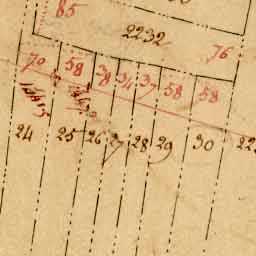 85
2232
76
70 58 38 34 37 58 58
24 25 26 27 28 29 30 22